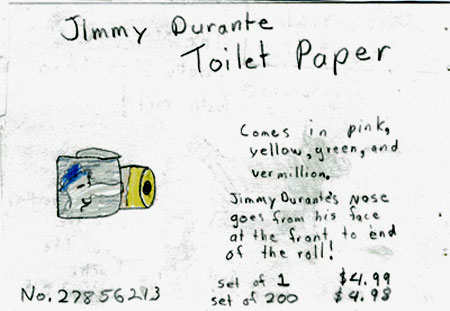 Jimmy Durante
Toilet Paper
Comes in pink,
yellow, green, and
vermillion.
Jimmy Durante's nose
goes from his face
at the front to end
of the roll!
set of 1 $4.99
set of 200 $4.98
No. 27856213